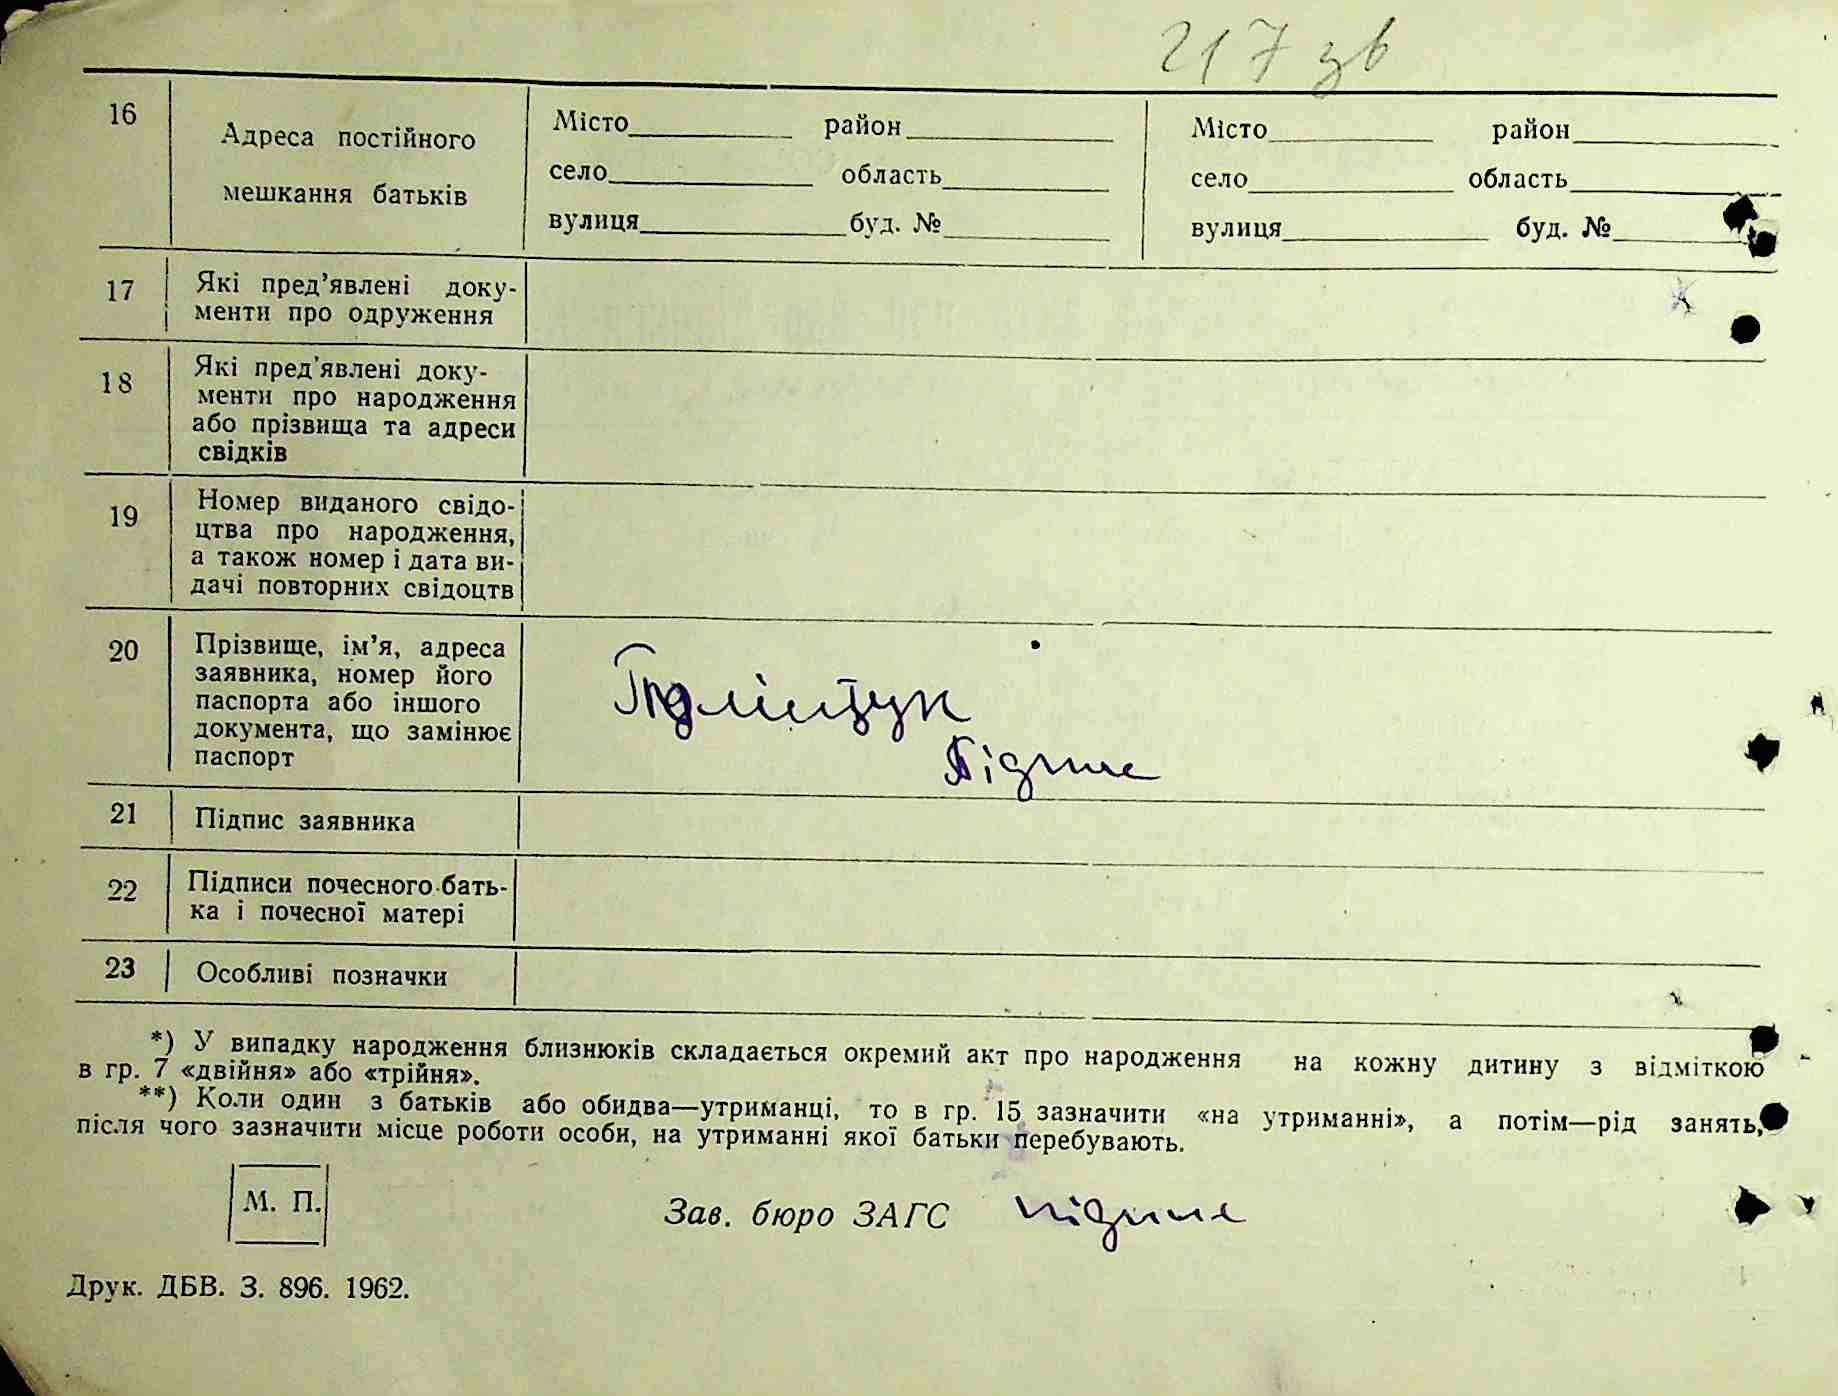 217 зв
16
Адреса постійного
мешкання батьків
Місто район
село область
вулиця буд. №
Місто район
село область
вулиця буд. №
17
Які пред’явлені доку-
менти про одруження
18
Які пред’явлені доку-
менти про народження
або прізвища та адреси
свідків
19
Номер виданого свідо-
цтва про народження,
а також номер і дата ви-
дачі повторних свідоцтв
20
Прізвище, ім’я, адреса
заявника, номер його
паспорта або іншого
документа, що замінює
паспорт
Поліщук
Підпис
21
Підпис заявника
22
Підписи почесного бать-
ка і почесної матері
23
Особливі позначки
*) У випадку народження близнюків складається окремий акт про народження на кожну дитину з відміткою
в гр. 7 «двійня» або «трійня».
**) Коли один з батьків або обидва—утриманці, то в гр. 15 зазначити «на утриманні», а потім—рід занять,
після чого зазначити місце роботи особи, на утриманні якої батьки перебувають.
М. П.
Зав. бюро ЗАГС підпис
Друк. ДБВ. З. 896. 1962.